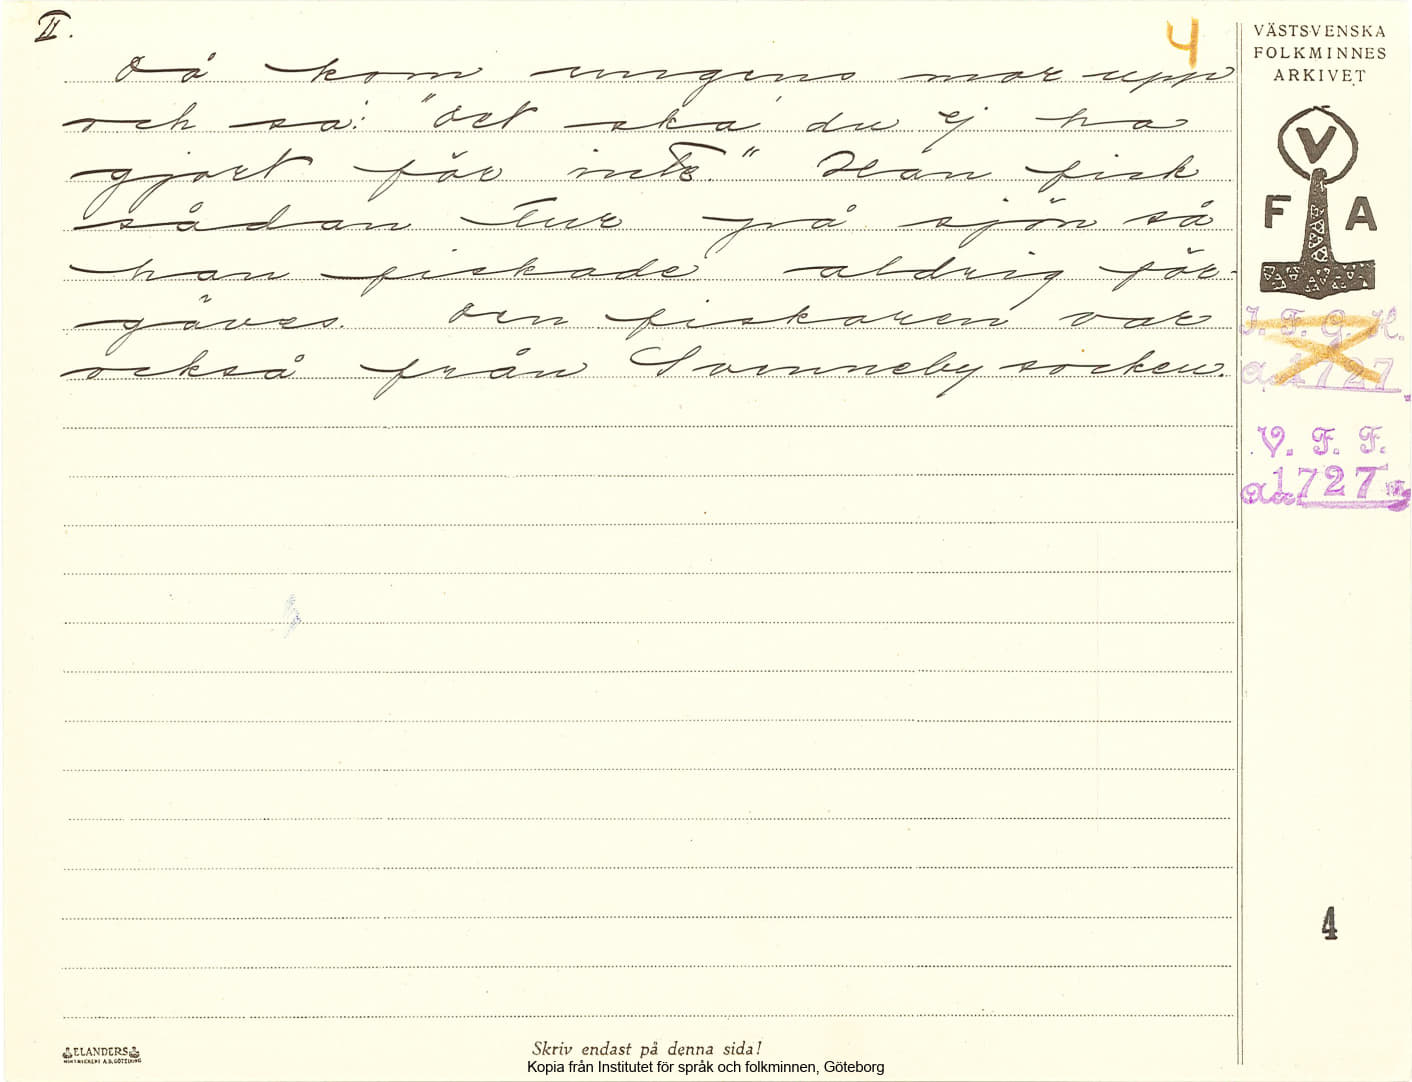 II.
4
Då kom ungens mor upp
och sa: "Det ska du ej ha
gjort för inte." Han fick
sådan tur på sjön så
han fiskade aldrig för-
gäves. Den fiskaren var
också från Svenneby socken.
VÄSTSVENSKA
FOLKMINNES
ARKIVET
V
F A
I. F. G. H.
Acc 1727
V. F. F.
Acc 1727
4
ELANDERS
Skriv endast på denna sida!
Kopia från Institutet för språk och folkminnen, Göteborg